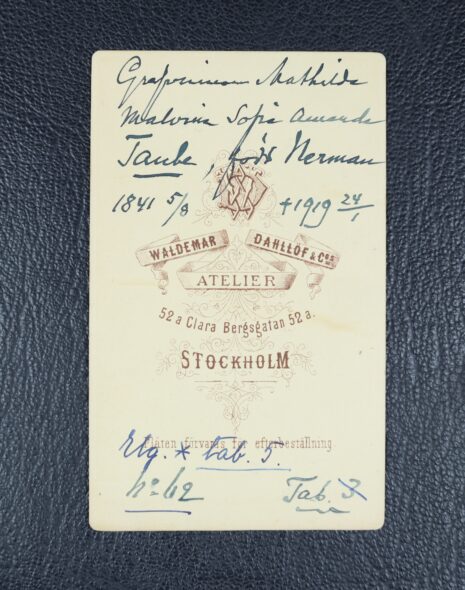 Grefvinnan Mathilda
Malvina Sofia Amanda
Taube, född Nerman
1841 5/8 †1919 24/1
WALDEMAR DAHLLÖF & Co:s
ATELIER
52 a Clara Bergsgatan 52 a.
STOCKHOLM
Plåten förvaras för efterbeställning.
Etg. * tab. 5.
No 62 Tab. 3